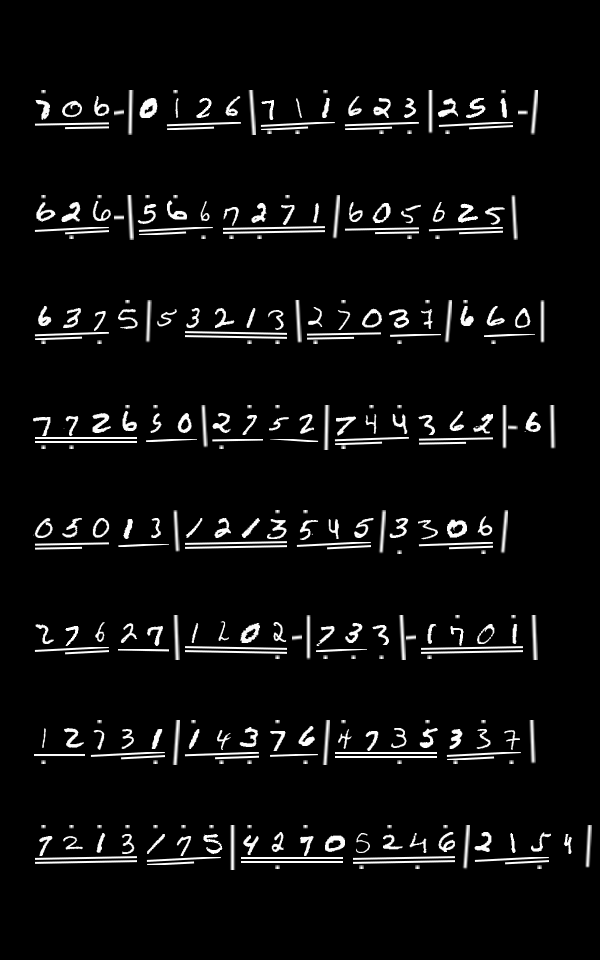 706-|0126|711 623|251-|
626-|5667271|605625|
6375|53213|27037|660|
772650|2752|744362|-6|
05013|1213545|3306|
27627|1202-|733|-1701|
12731|14376|4735337|
7213175|42705246|2154|